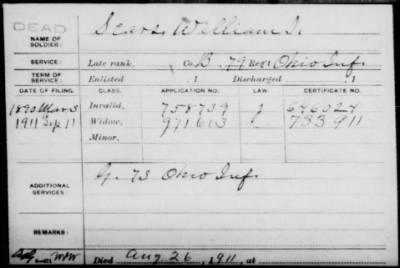 DEAD
NAME OF SOLDIER: Sears, William S.
SERVICE: Late rank, Co. B. 79 Reg't Ohio Inf.
TERM OF SERVICE: Enlisted , 1 Discharged , 1
DATE OF FILING. CLASS. APPLICATION NO. LAW. CERTIFICATE NO.
1890 Mar 3 Invalid, 758739 646024
1911 Sep 11 Widow, 971613 733911
Minor,
ADDITIONAL SERVICES: G. 73 Ohio Inf.
Died Aug 26, 1911, at